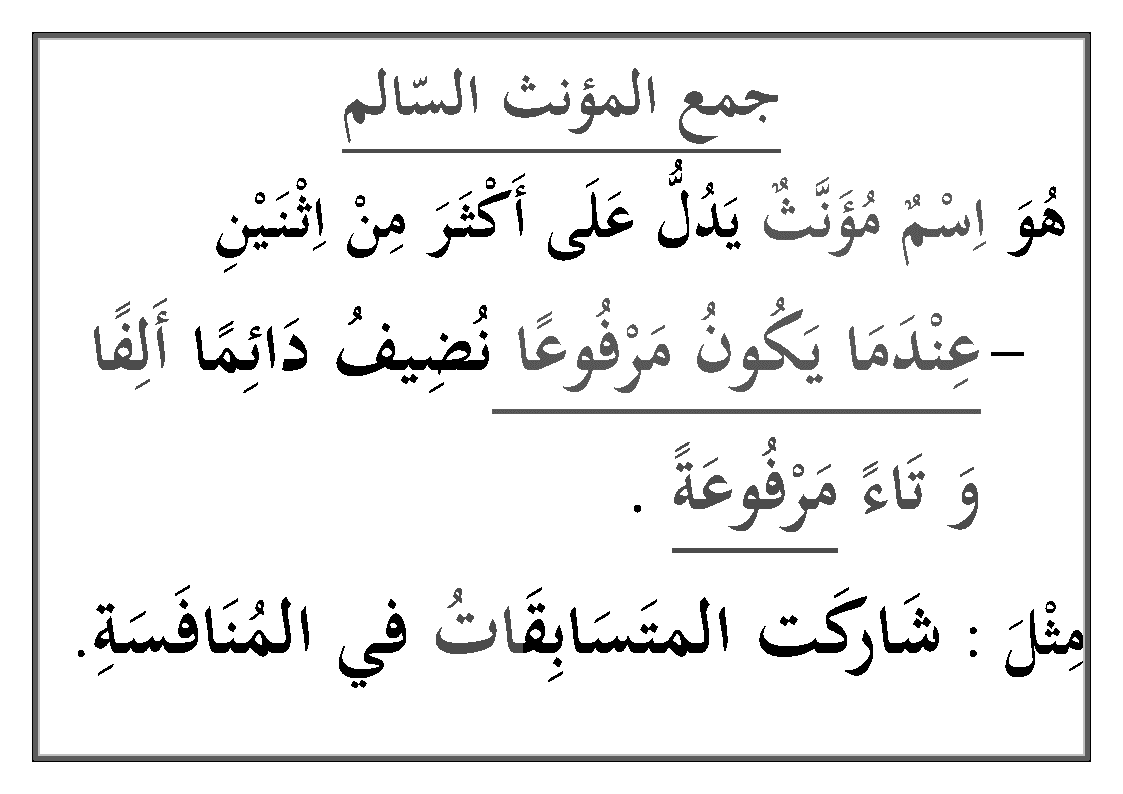 جمع المؤنث السّالم
هُوَ اِسْمٌ مُؤَنَّثٌ يَدُلُّ عَلَى أَكْثَرَ مِنْ اِثْنَيْنِ
– عِنْدَمَا يَكُونُ مَرْفُوعًا نُضِيفُ دَائِمًا أَلِفًا
وَ تَاءً مَرْفُوعَةً .
مِثْلَ : شَارَكَت المتَسَابِقَاتُ في المُنَافَسَةِ.